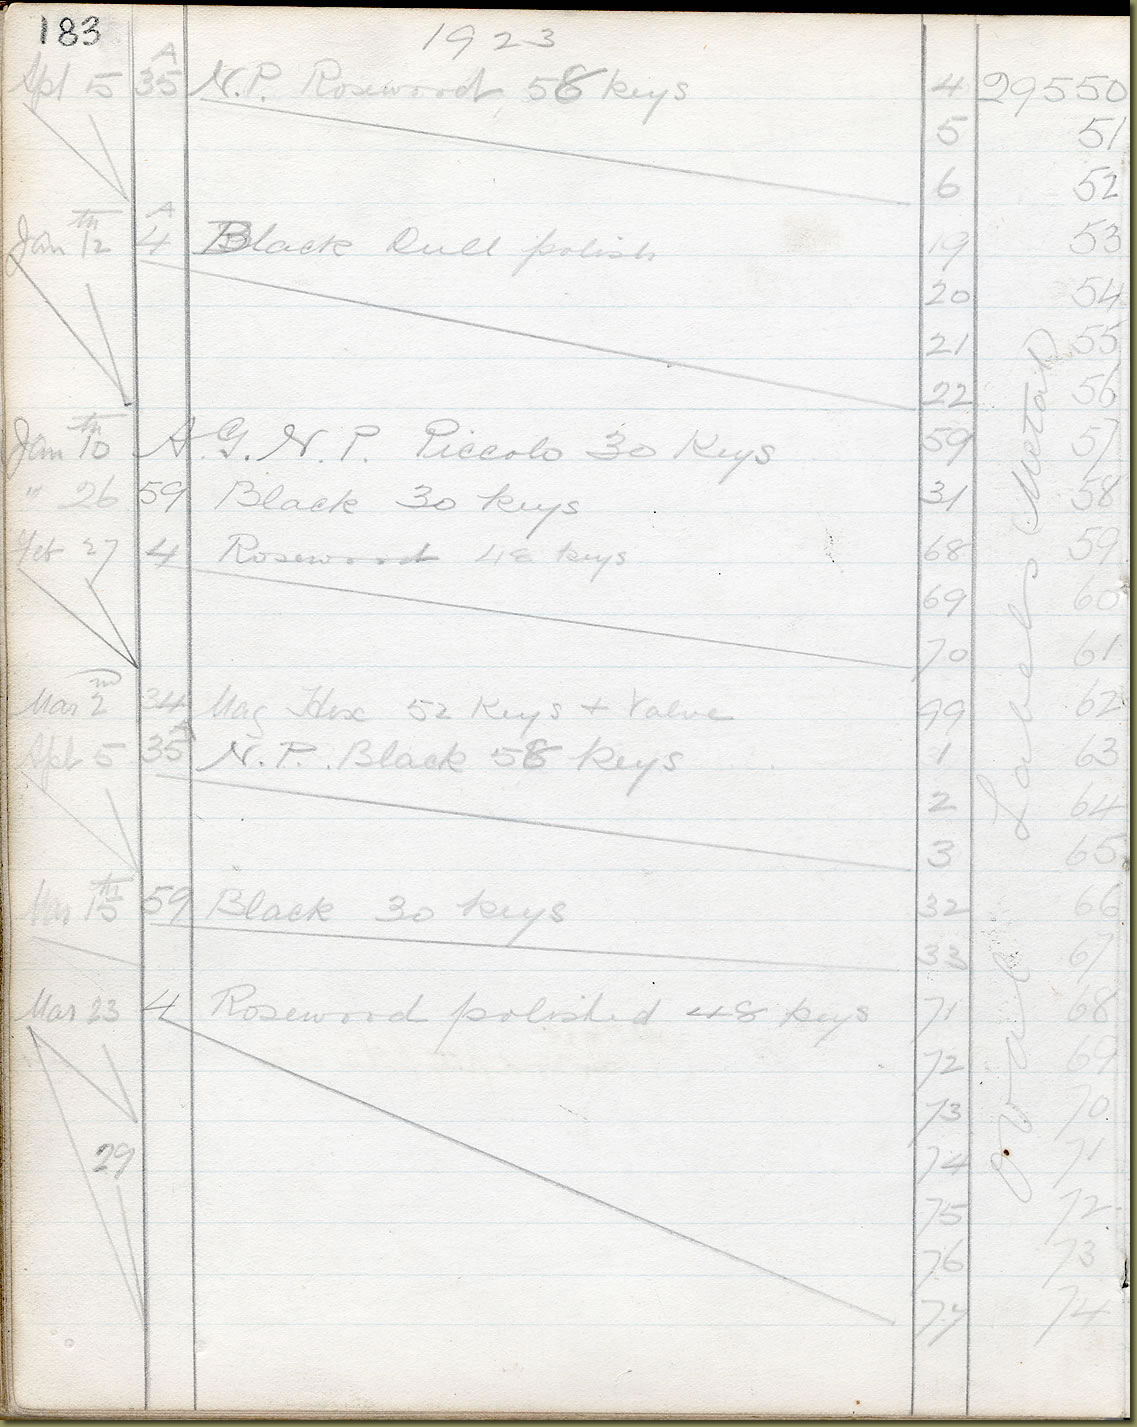 183
1923
Apl 5 35 A N.P. Rosewood 58 keys 4 29550
5 51
6 52
Jan 12th 4 A Black Dull polish 19 53
20 54
21 55
22 56
Jan 10th A.G. N.P. Piccolo 30 Keys 59 57
" 26 59 Black 30 keys 31 58
Feb 27 4 Rosewood 48 keys 68 59
69 60
70 61
Mar 2nd 34 Mag Hex 52 Keys + Valve 99 62
Apl 5 35 A N.P. Black 58 keys 1 63
2 64
3 65
Mar 15th 59 Black 30 keys 32 66
33 67
Mar 23 4 Rosewood polished 48 keys 71 68
72 69
73 70
29 74 71
75 72
76 73
77 74
Oval Labels Metal